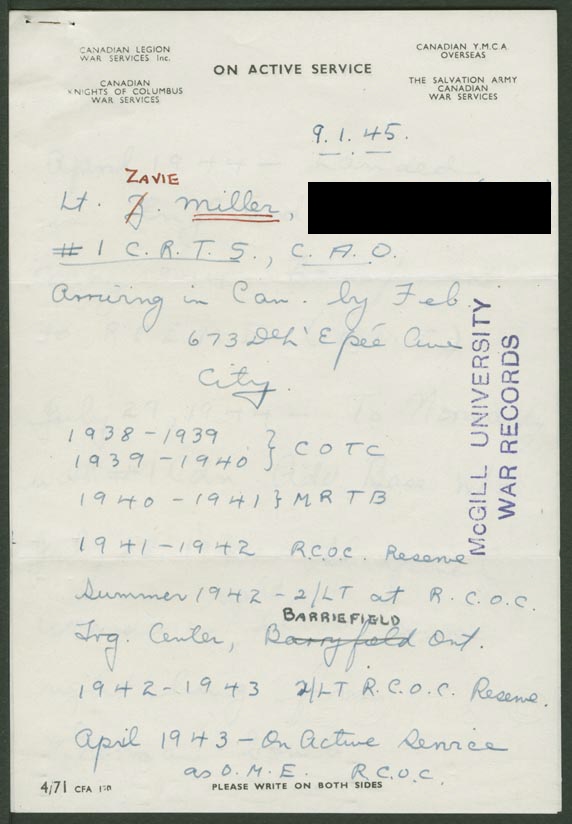 CANADIAN LEGION
WAR SERVICES Inc.
CANADIAN
KNIGHTS OF COLUMBUS
WAR SERVICES
ON ACTIVE SERVICE
CANADIAN Y.M.C.A
OVERSEAS
THE SALVATION ARMY
CANADIAN
WAR SERVICES
9.1.45.
ZAVIE
Lt. Z. Miller,
#1 C.R.T.S., C.A.O.
Arriving in Can. by Feb.
673 De L'Epée Ave
City.
1938-1939
1939-1940 } COTC
1940-1941 } MRTB
1941-1942 R.C.O.C. Reserve
Summer 1942 - 2/LT at R.C.O.C.
BARRIEFIELD
Trg. Center, Barryfield Ont.
1942-1943 2/LT R.C.O.C. Reserve.
April 1943 - On Active Service
as O.M.E. R.C.O.C.
4/71 CFA
PLEASE WRITE ON BOTH SIDES
McGILL UNIVERSITY
WAR RECORDS